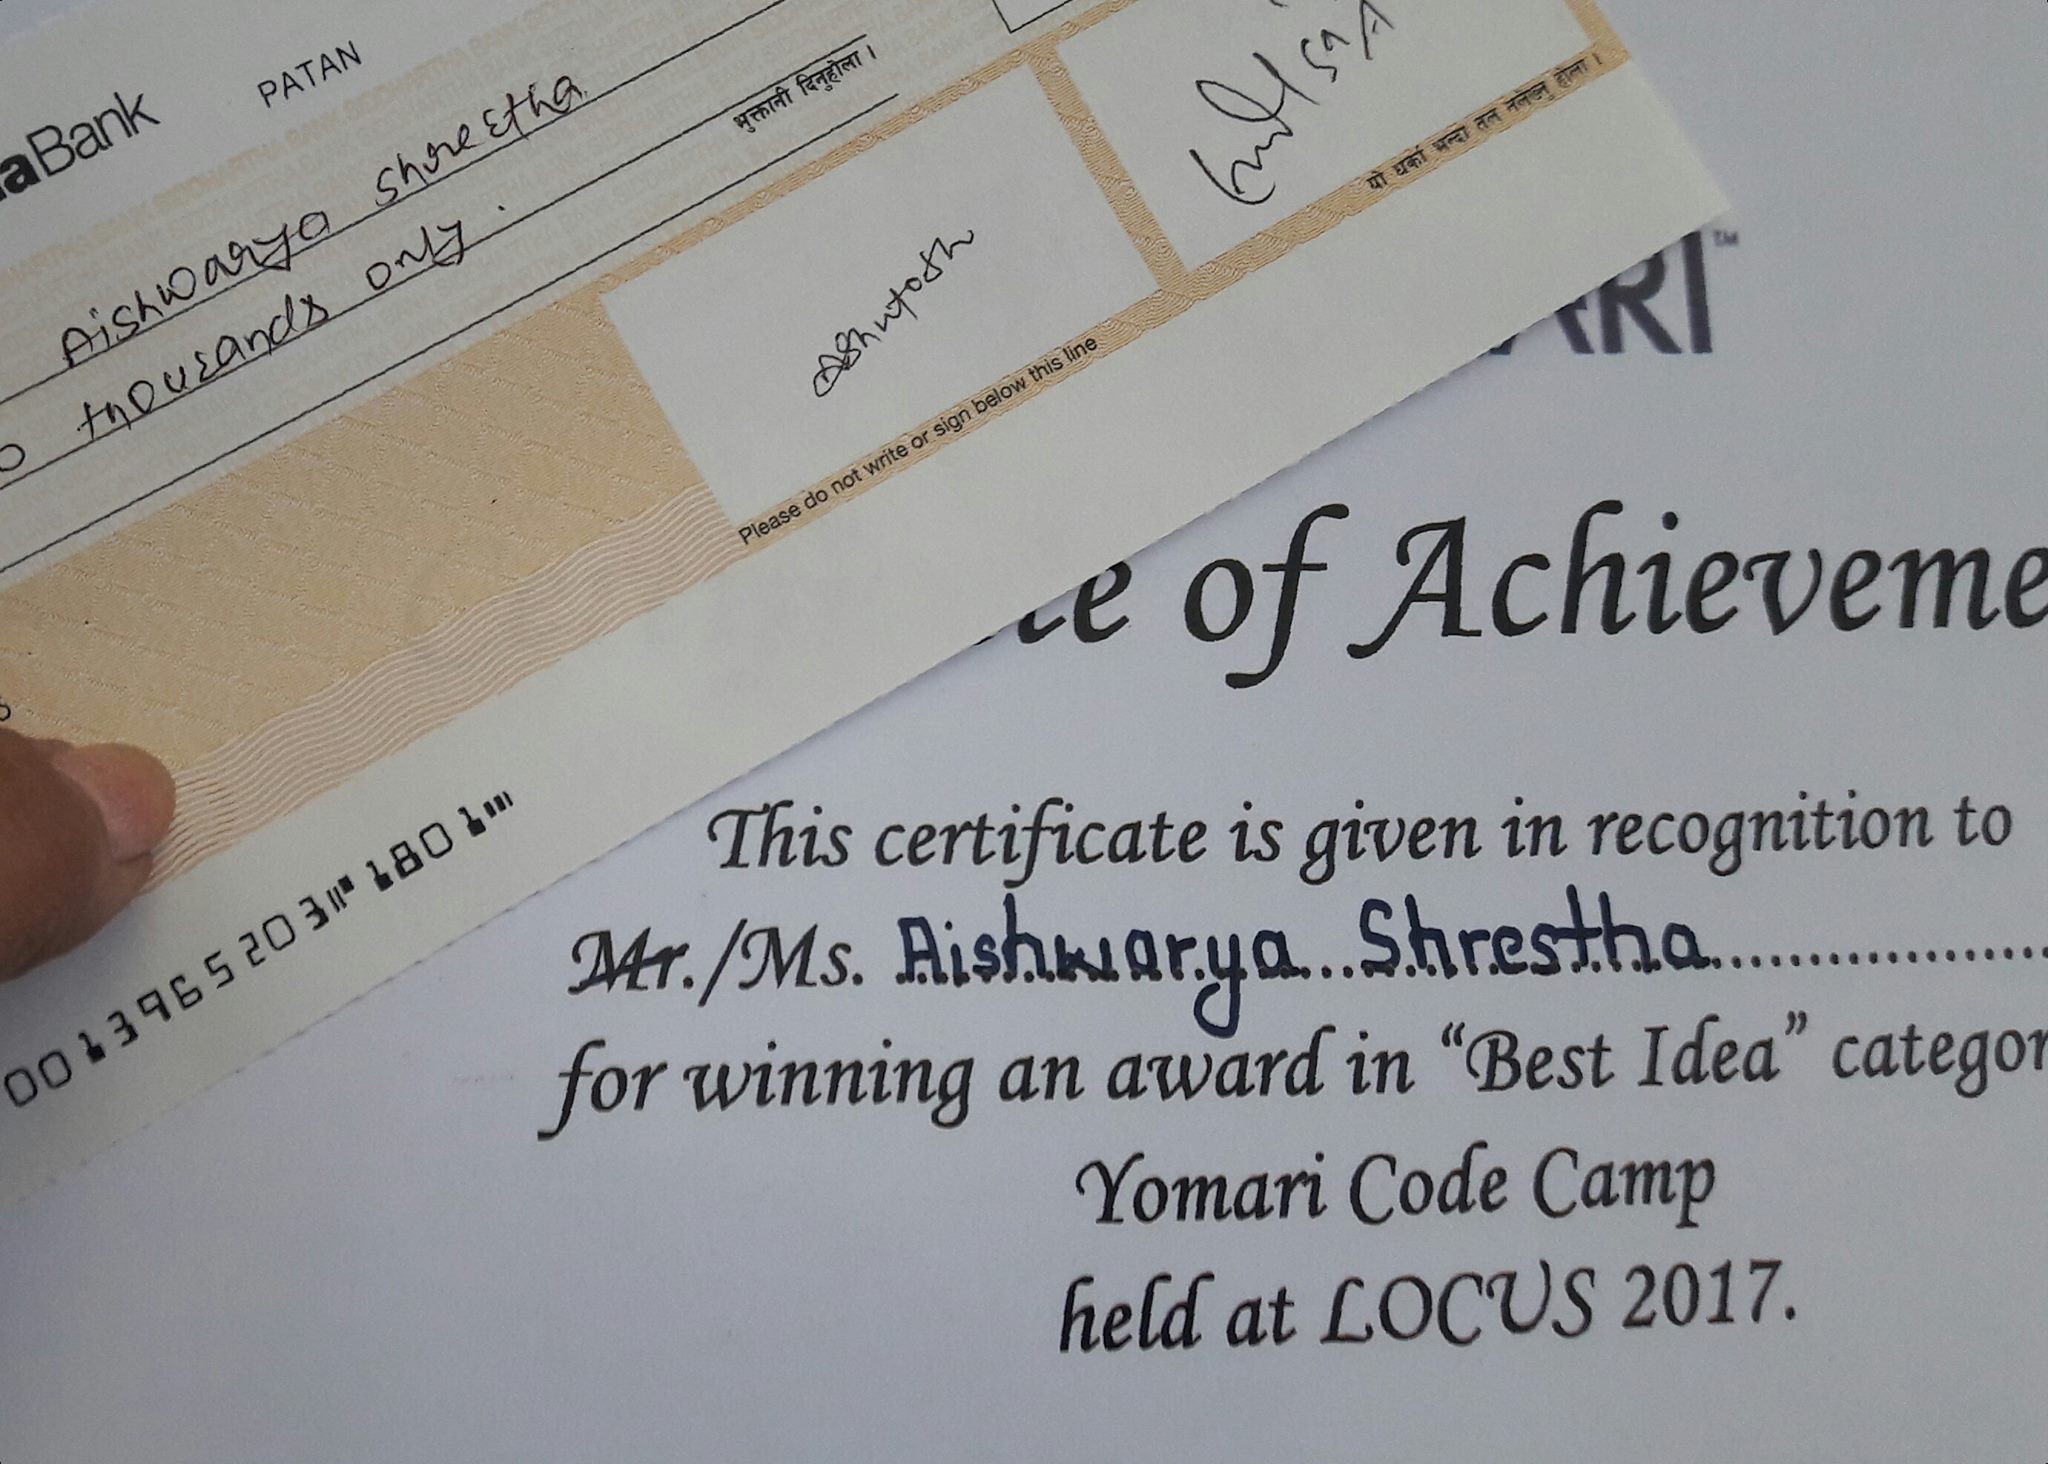 aBank
PATAN
Aishwarya Shrestha
thousands only.
भुक्तानी दिनुहोला ।
Ashutosh
Please do not write or sign below this line
यो धर्का भन्दा तल नलेख्नु होला ।
0013965203 1801
ARI™
te of Achieveme
This certificate is given in recognition to
Mr./Ms. Aishwarya Shrestha
for winning an award in “Best Idea” categor
Yomari Code Camp
held at LOCUS 2017.